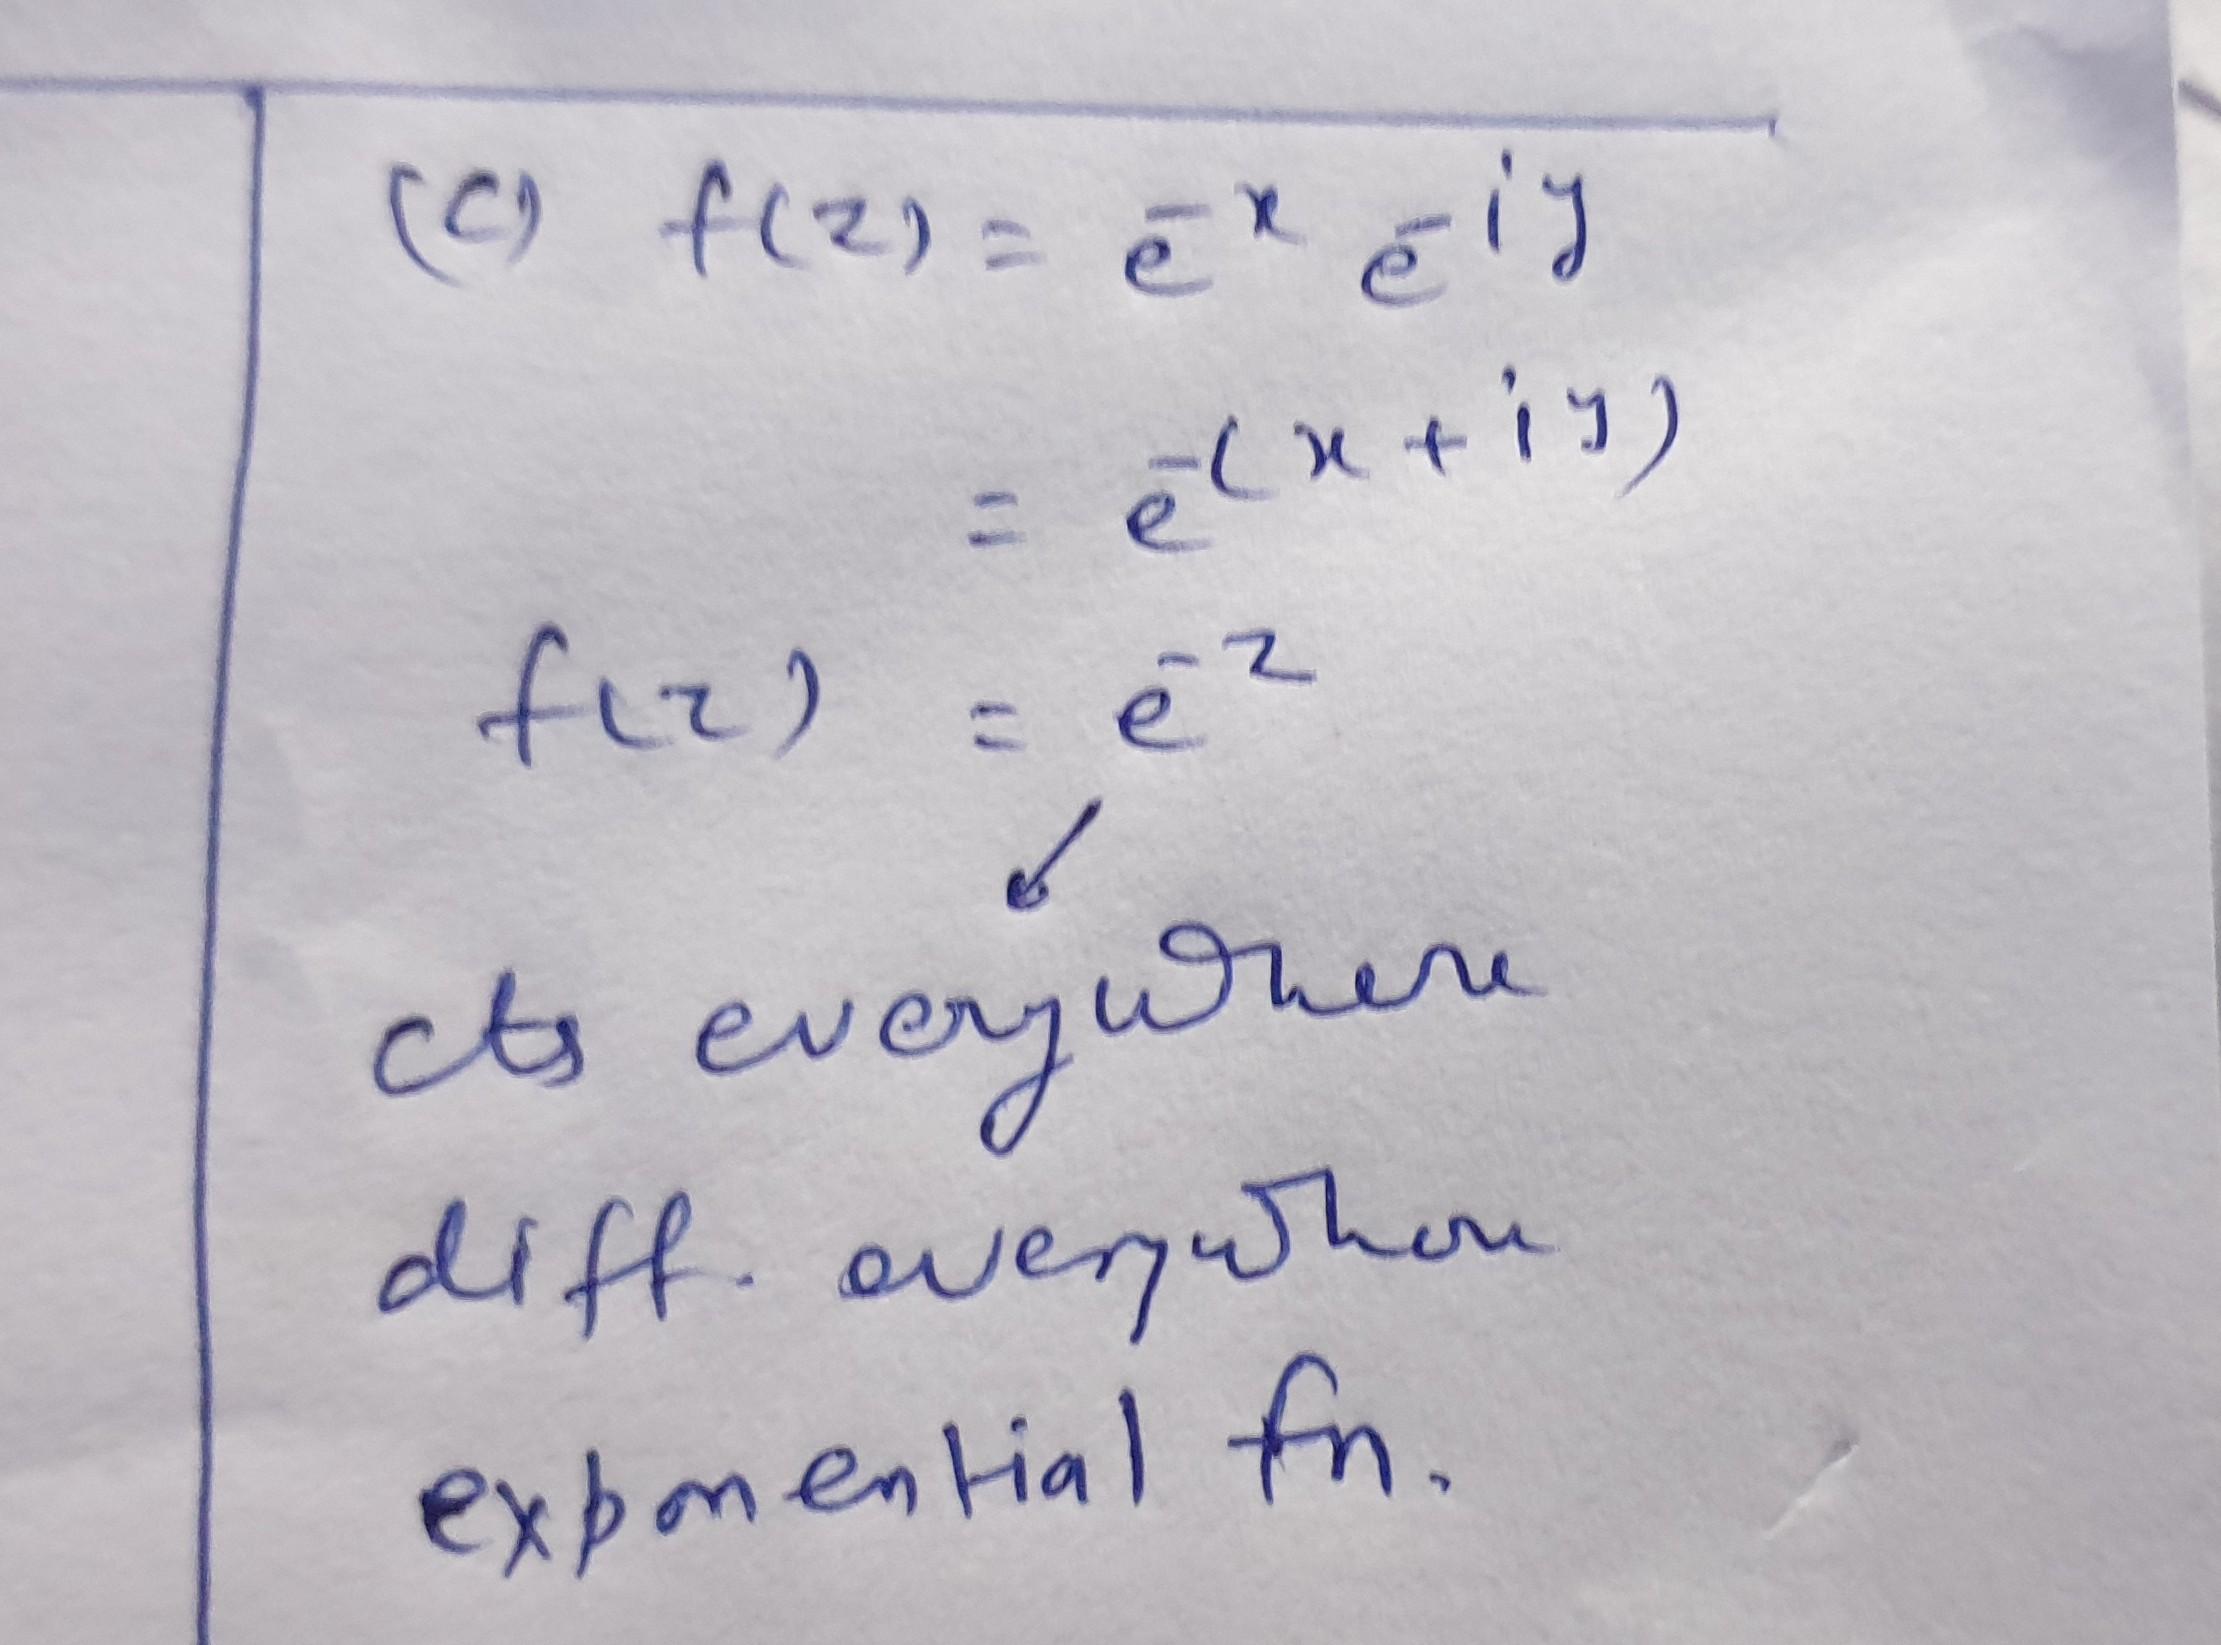 (C) f(z) = e^-x e^-iy
= e^-(x+iy)
f(z) = e^-z
cts everywhere
diff. everywhere
exponential fn.